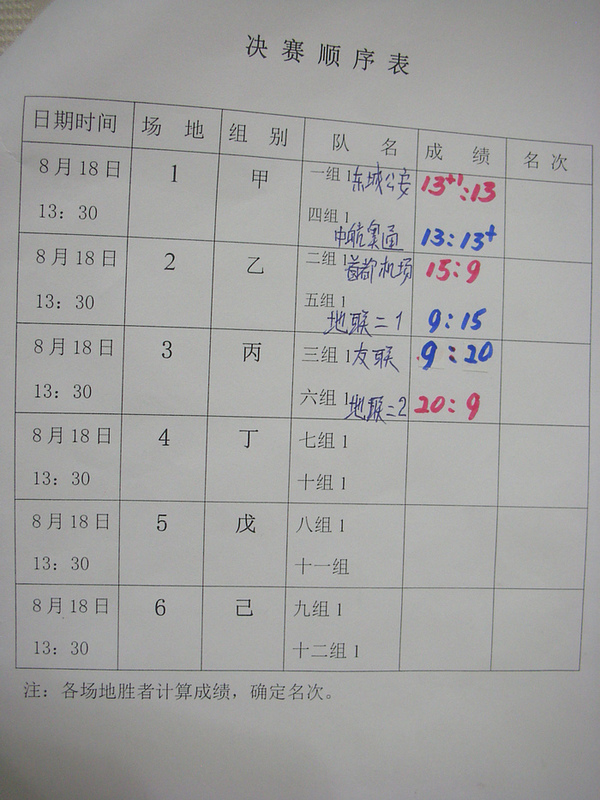 决赛顺序表
日期时间 场 地 组 别 队 名 成 绩 名 次
8月18日 1 甲 一组1 东城公安 13+1:13
13:30 四组1 中航宾通 13:13+
8月18日 2 乙 二组1 首都机场 15:9
13:30 五组1 地联二1 9:15
8月18日 3 丙 三组1 友联 9:20
13:30 六组1 地联二2 20:9
8月18日 4 丁 七组1
13:30 十组1
8月18日 5 戊 八组1
13:30 十一组
8月18日 6 己 九组1
13:30 十二组1
注：各场地胜者计算成绩，确定名次。